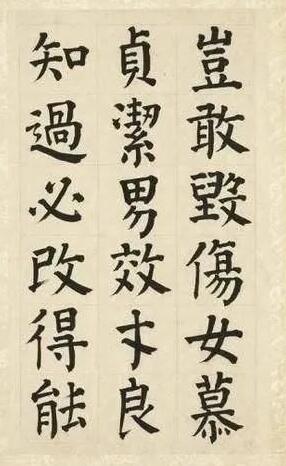 豈敢毀傷女慕
貞潔男效才良
知過必改得能